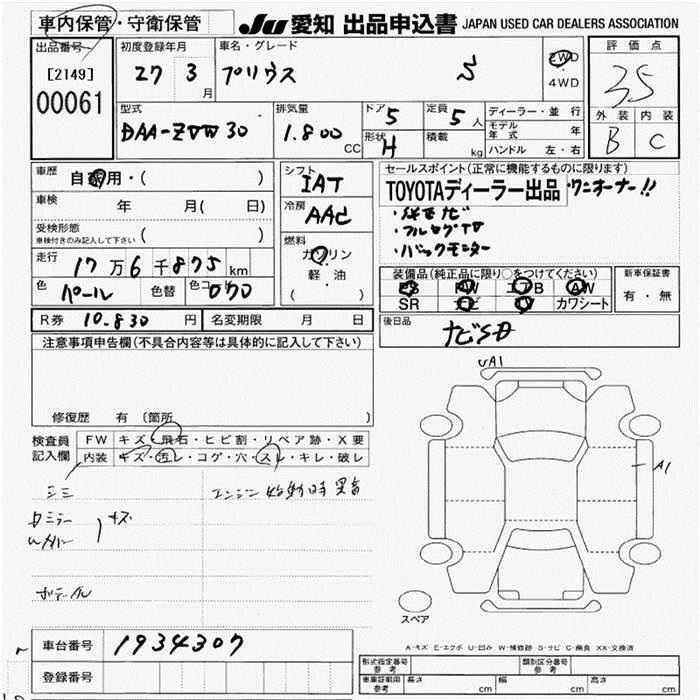 車内保管・守衛保管 JU 愛知 出品申込書 JAPAN USED CAR DEALERS ASSOCIATION
出品番号 初度登録年月 車名・グレード 2WD 評価点
[2149] 27 3月 プリウス S ・ 3.5
00061 4WD
型式 排気量 ドア 5 定員 5人 ディーラー・並行 外装 内装
DAA-ZVW30 1.800 CC 形状 H 積載 kg モデル年式 年 B C
ハンドル 左・右
車歴 自家用・( ) シフト IAT セールスポイント(正常に機能するものに限ります)
車検 年 月( 日) 冷房 AAC TOYOTAディーラー出品 ワンオーナー!!
受検形態 ( ) ・純正ナビ
車検付きのみ記入して下さい ・フルセグTV
走行 17万6千875km 燃料 ガソリン ・バックモニター
・ 装備品(純正品に限り○をつけてください) 新車保証書
軽・油 PS PW エアB AW 有・無
色 パール 色替 色コード 070 ( ) SR ナビ TV カワシート
R券 10.830円 名変期限 月 日 後日品 ナビSD
注意事項申告欄(不具合内容等は具体的に記入して下さい)
修復歴 有 (箇所
UA1
検査員 FW キズ・飛石・ヒビ割・リペア跡・X要
記入欄 内装 キズ・汚レ・コゲ・穴・スレ・キレ・破レ
A1
エンジン始動時異音
キズ
スペア
A-キズ E-エクボ U-凹み W-補修跡 S-サビ C-腐食 XX-交換済
車台番号 1934307
形式指定番号 参考 類別区分番号 参考
登録番号 車庫証明用 参考 長さ cm 幅 cm 高さ cm